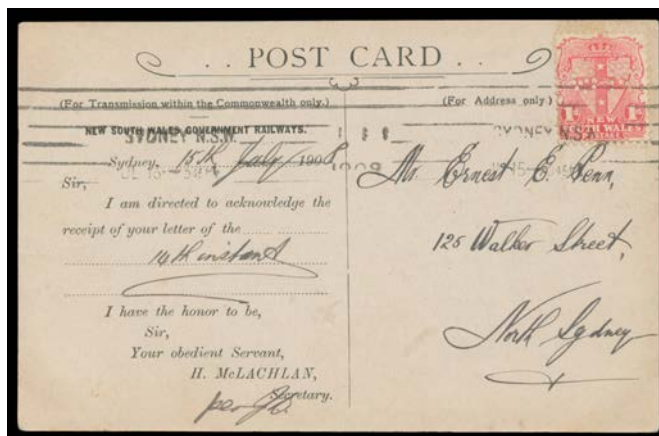 . . POST CARD . .
SYDNEY N.S.W.
(For Transmission within the Commonwealth only.)
NEW SOUTH WALES GOVERNMENT RAILWAYS.
SYDNEY N.S.W.
Sydney, 15th July 1908
Sir,
I am directed to acknowledge the
receipt of your letter of the
14th instant
I have the honor to be,
Sir,
Your obedient Servant,
H. McLACHLAN,
Secretary.
per
(For Address only)
1D
NEW
SOUTH WALES
SYDNEY N.S.W.
1908
Mr. Ernest E. Penn,
125 Walker Street,
North Sydney